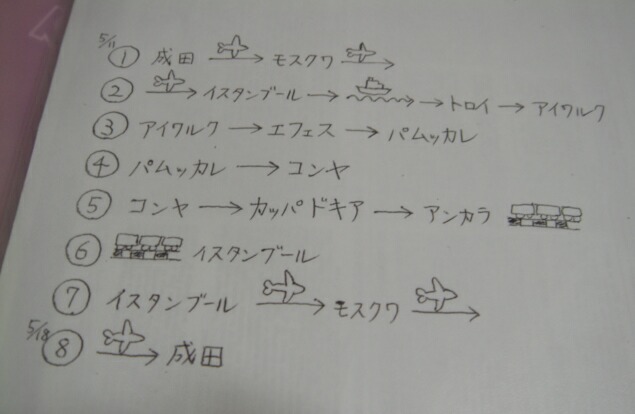 5/11 ① 成田 → モスクワ →
② → イスタンブール → → トロイ → アイワルク
③ アイワルク → エフェス → パムッカレ
④ パムッカレ → コンヤ
⑤ コンヤ → カッパドキア → アンカラ
⑥ イスタンブール
⑦ イスタンブール → モスクワ →
5/18 ⑧ → 成田